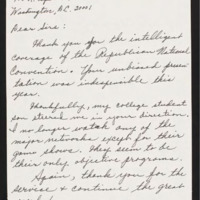 Washington, D.C. 20001
Dear Sirs:
Thank you for the intelligent
coverage of the Republican National
Convention. Your unbiased presen-
tation was indispensible this
year.
Thankfully, my college student
son steered me in your direction.
I no longer watch any of the
major networks except for their
game shows. They seem to be
their only objective programs.
Again, thank you for the
service & continue the great